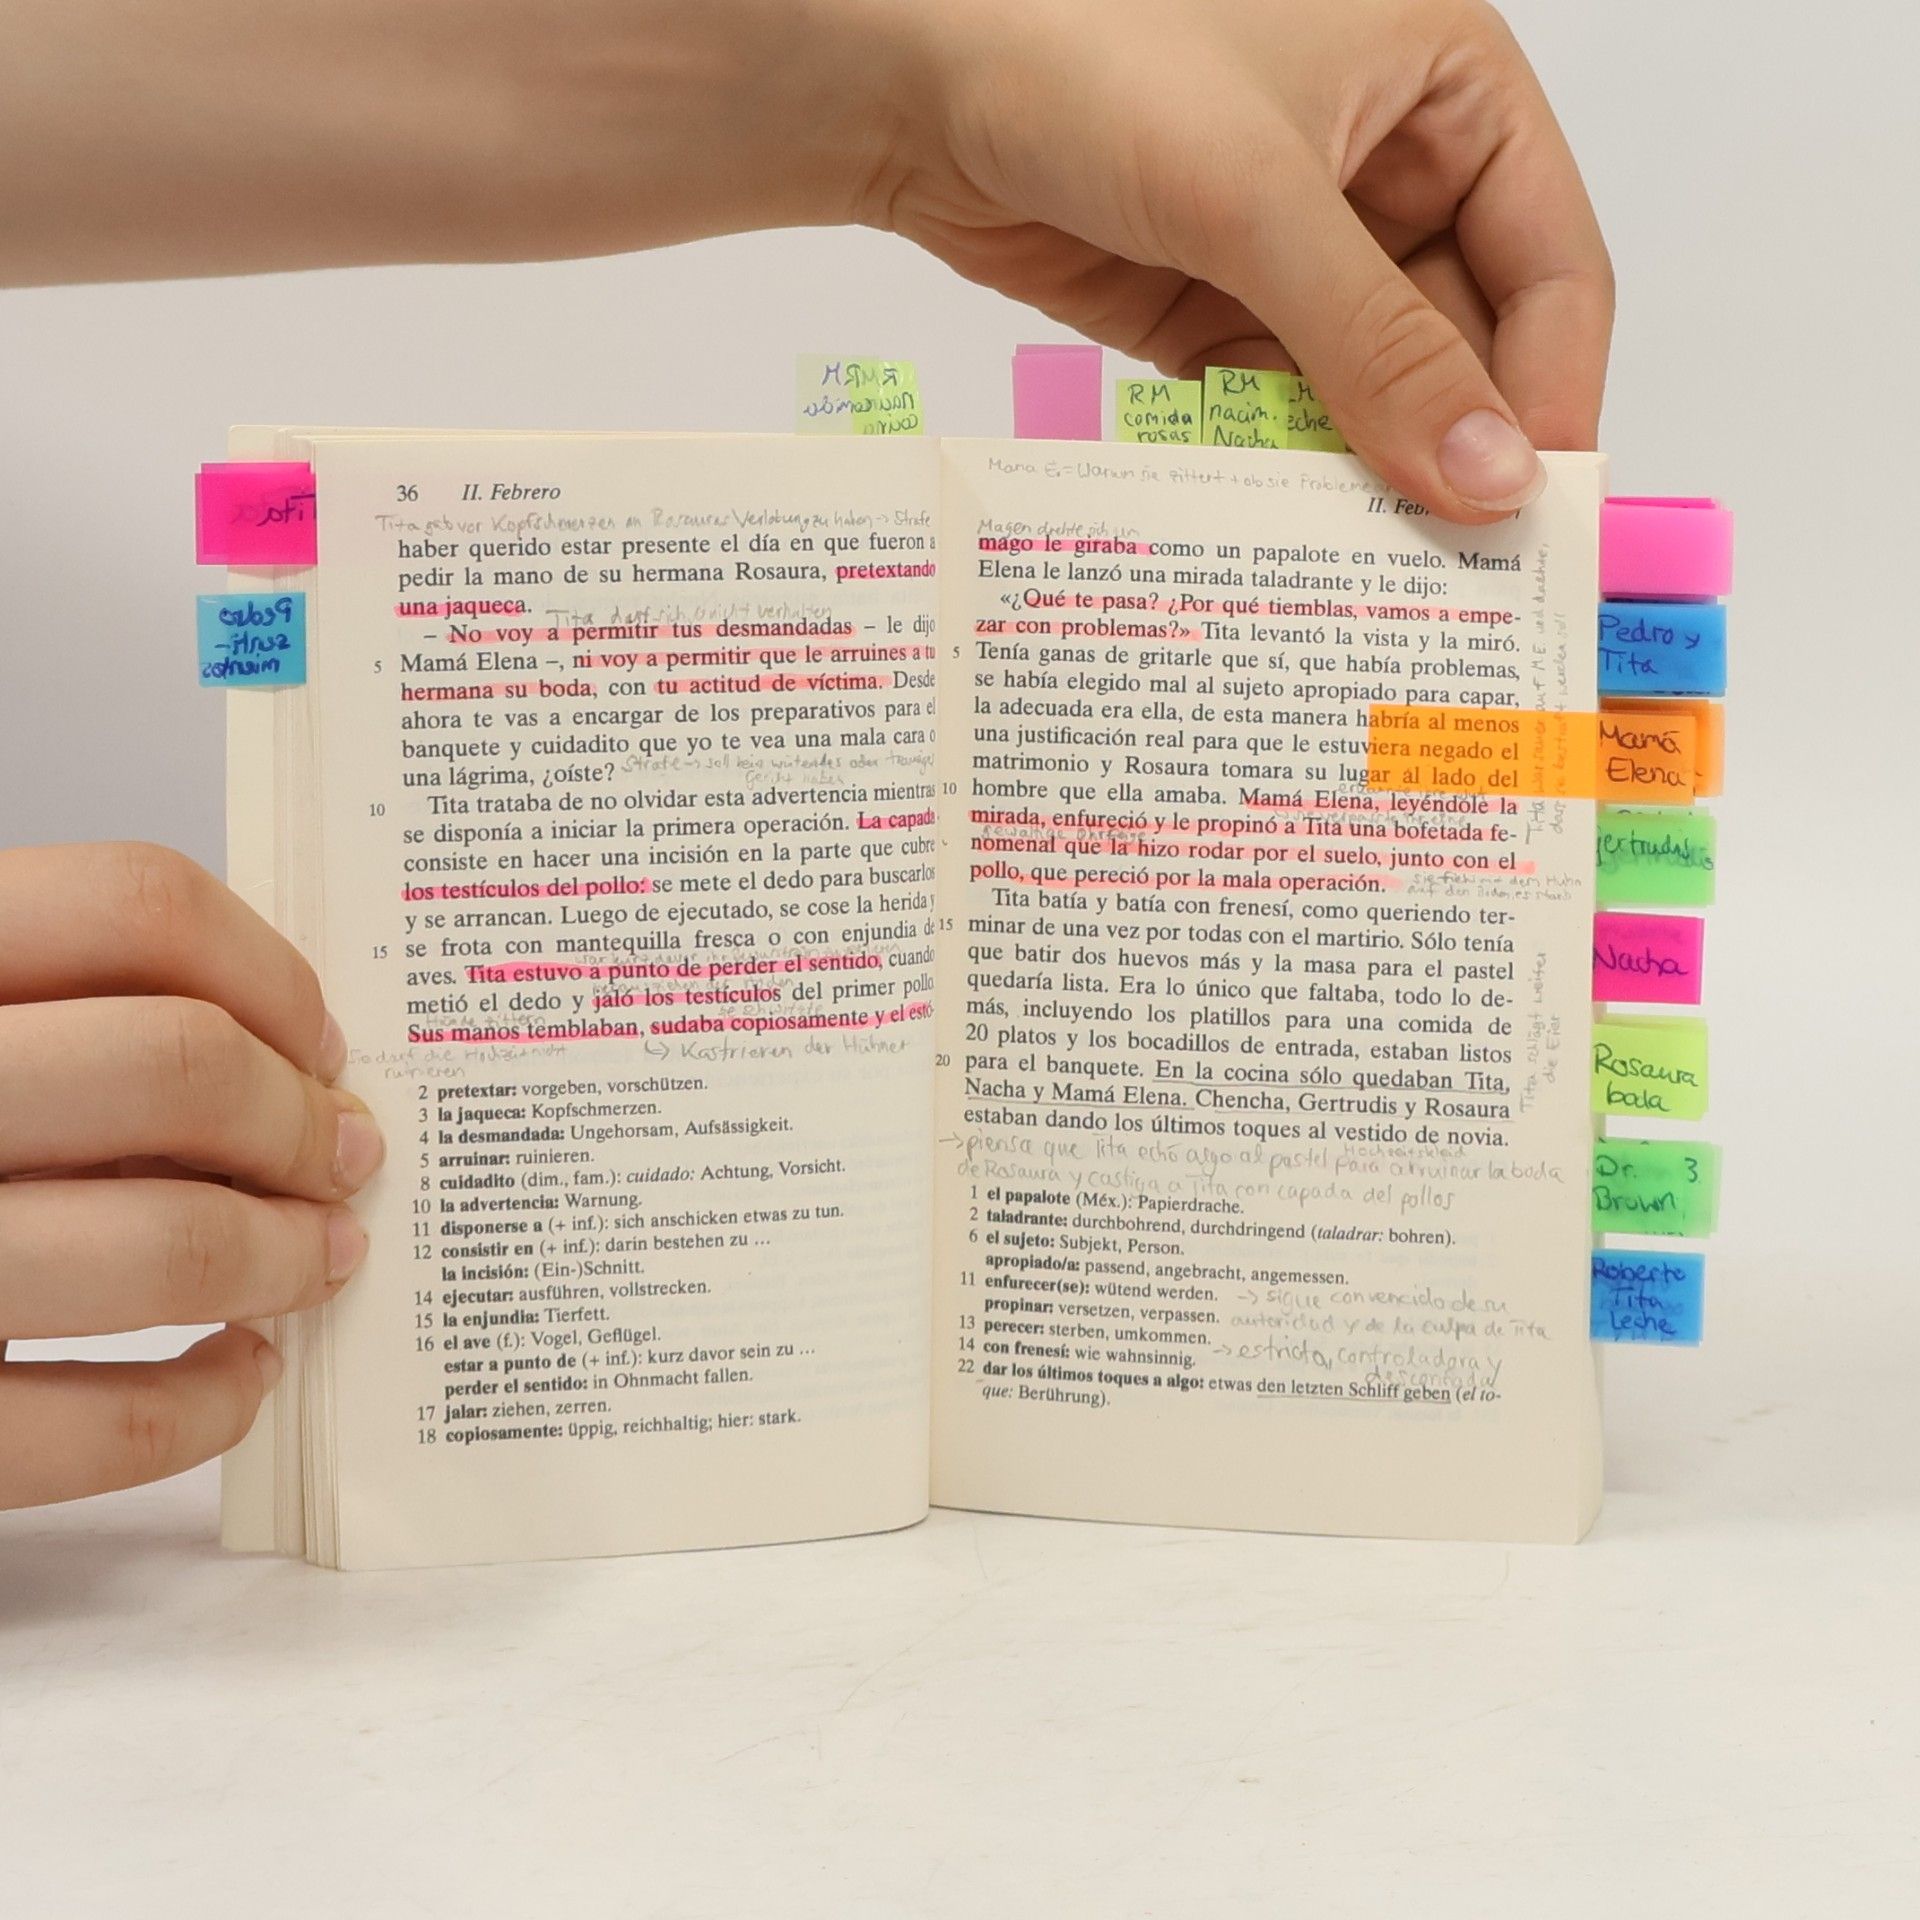 RM
comida
rosas
RM
nacim.
Nacha
36 II. Febrero
Tita gab vor Kopfschmerzen an Rosauras Verlobung zu haben → Strafe
haber querido estar presente el día en que fueron a
pedir la mano de su hermana Rosaura, pretextando
una jaqueca.
Tita darf sich nicht verhalten
– No voy a permitir tus desmandadas – le dijo
5 Mamá Elena –, ni voy a permitir que le arruines a tu
hermana su boda, con tu actitud de víctima. Desde
ahora te vas a encargar de los preparativos para el
banquete y cuidadito que yo te vea una mala cara o
una lágrima, ¿oíste?
Strafe → soll kein wütendes oder trauriges
Gesicht haben
10 Tita trataba de no olvidar esta advertencia mientras
se disponía a iniciar la primera operación. La capada
consiste en hacer una incisión en la parte que cubre
los testículos del pollo: se mete el dedo para buscarlos
y se arrancan. Luego de ejecutado, se cose la herida y
15 se frota con mantequilla fresca o con enjundia de
aves. Tita estuvo a punto de perder el sentido, cuando
metió el dedo y jaló los testículos del primer pollo.
Hände zittern
sie schwitzte
Sus manos temblaban, sudaba copiosamente y el estó-
Sie darf die Hochzeit nicht
ruinieren
↳ Kastrieren der Hühner
2 pretextar: vorgeben, vorschützen.
3 la jaqueca: Kopfschmerzen.
4 la desmandada: Ungehorsam, Aufsässigkeit.
5 arruinar: ruinieren.
8 cuidadito (dim., fam.): cuidado: Achtung, Vorsicht.
10 la advertencia: Warnung.
11 disponerse a (+ inf.): sich anschicken etwas zu tun.
12 consistir en (+ inf.): darin bestehen zu ...
la incisión: (Ein-)Schnitt.
14 ejecutar: ausführen, vollstrecken.
15 la enjundia: Tierfett.
16 el ave (f.): Vogel, Geflügel.
estar a punto de (+ inf.): kurz davor sein zu ...
perder el sentido: in Ohnmacht fallen.
17 jalar: ziehen, zerren.
18 copiosamente: üppig, reichhaltig; hier: stark.
Mama E. = Warum sie zittert + ob sie Probleme
II. Feb
Magen drehte sich um
mago le giraba como un papalote en vuelo. Mamá
Elena le lanzó una mirada taladrante y le dijo:
«¿Qué te pasa? ¿Por qué tiemblas, vamos a empe-
zar con problemas?» Tita levantó la vista y la miró.
5 Tenía ganas de gritarle que sí, que había problemas,
se había elegido mal al sujeto apropiado para capar,
la adecuada era ella, de esta manera habría al menos
una justificación real para que le estuviera negado el
matrimonio y Rosaura tomara su lugar al lado del
10 hombre que ella amaba. Mamá Elena, leyéndole la
mirada, enfureció y le propinó a Tita una bofetada fe-
gewaltige Ohrfeige
nomenal que la hizo rodar por el suelo, junto con el
pollo, que pereció por la mala operación.
sie fiel mit dem Huhn
auf den Boden, es starb
Tita batía y batía con frenesí, como queriendo ter-
15 minar de una vez por todas con el martirio. Sólo tenía
que batir dos huevos más y la masa para el pastel
quedaría lista. Era lo único que faltaba, todo lo de-
más, incluyendo los platillos para una comida de
20 platos y los bocadillos de entrada, estaban listos
20 para el banquete. En la cocina sólo quedaban Tita,
Nacha y Mamá Elena. Chencha, Gertrudis y Rosaura
estaban dando los últimos toques al vestido de novia.
Hochzeitskleid
→ piensa que Tita echó algo al pastel para arruinar la boda
de Rosaura y castiga a Tita con capada del pollos
Tita schlägt weiter
die Eier
1 el papalote (Méx.): Papierdrache.
2 taladrante: durchbohrend, durchdringend (taladrar: bohren).
6 el sujeto: Subjekt, Person.
apropiado/a: passend, angebracht, angemessen.
11 enfurecer(se): wütend werden.
propinar: versetzen, verpassen.
→ sigue convencido de su
autoridad y de la culpa de Tita
13 perecer: sterben, umkommen.
14 con frenesí: wie wahnsinnig.
→ estricta, controladora y
desconfiada
22 dar los últimos toques a algo: etwas den letzten Schliff geben (el to-
que: Berührung).
Pedro y
Tita
Mamá
Elena
Gertrudis
Nacha
Rosaura
boda
Dr. 3
Brown
Roberto
Tita
Leche